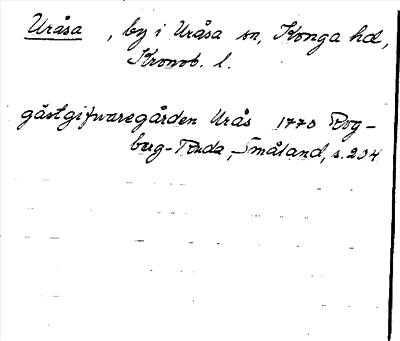 Uråsa , by i Uråsa sn, Konga hd,
Kronob. l.
gästgifwaregården Urås 1770 Rog-
berg-Ruda, Småland, s. 204